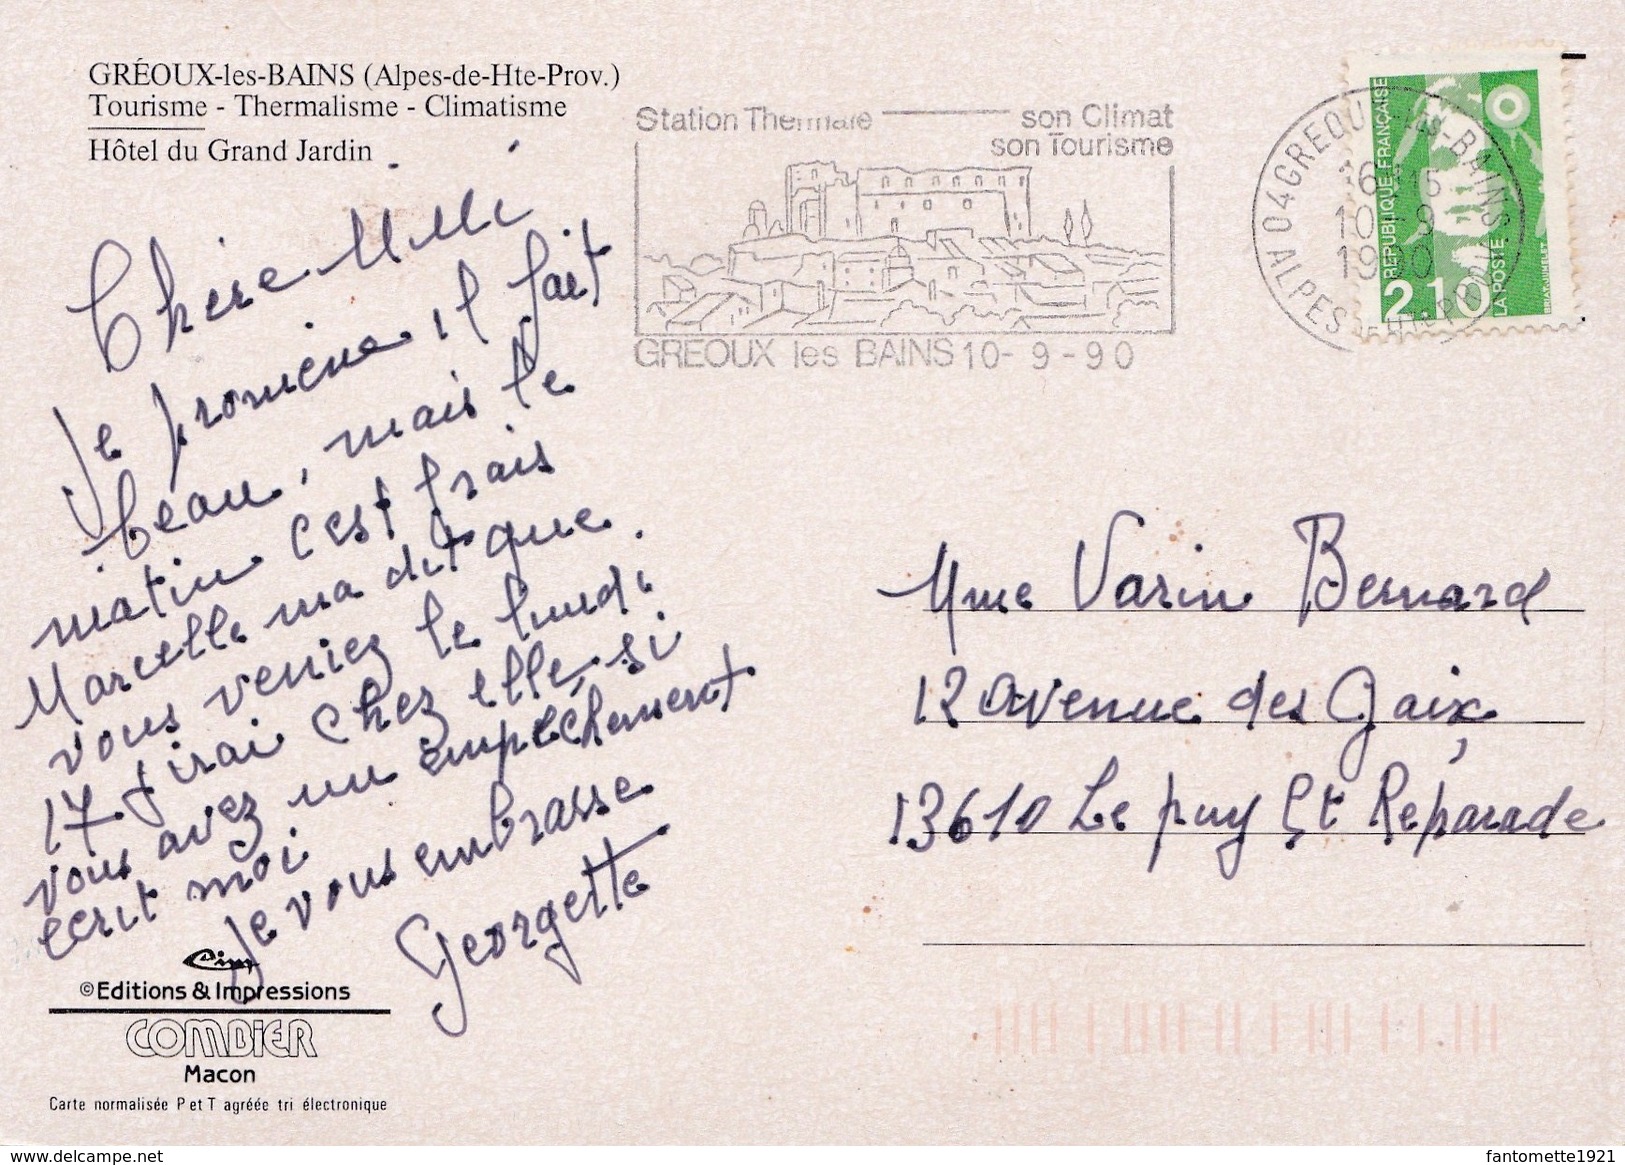 GRÉOUX-les-BAINS (Alpes-de-Hte-Prov.)
Tourisme - Thermalisme - Climatisme
Hôtel du Grand Jardin
Station Thermale son Climat
son Tourisme
GREOUX les BAINS 10-9-90
04 GREOUX-LES-BAINS
16H15
10-9
1990
ALPES DE HTE PROV.
REPUBLIQUE FRANÇAISE
2,10
LA POSTE
BRIAT-JUMELET
Chère Mimi
Je promène, il fait
beau, mais le
matin c'est frais
Marcelle ma dit que
vous veniez le lundi
17 j'irai chez elle, si
vous avez un empêchement
écrit moi
Je vous embrasse
Georgette
Mme Varin Bernard
12 avenue des Gaix
13610 Le puy St Reparade
Cim
©Editions & Impressions
COMBIER
Macon
Carte normalisée P et T agréée tri électronique
https://www.delcampe.net
fantomette1921